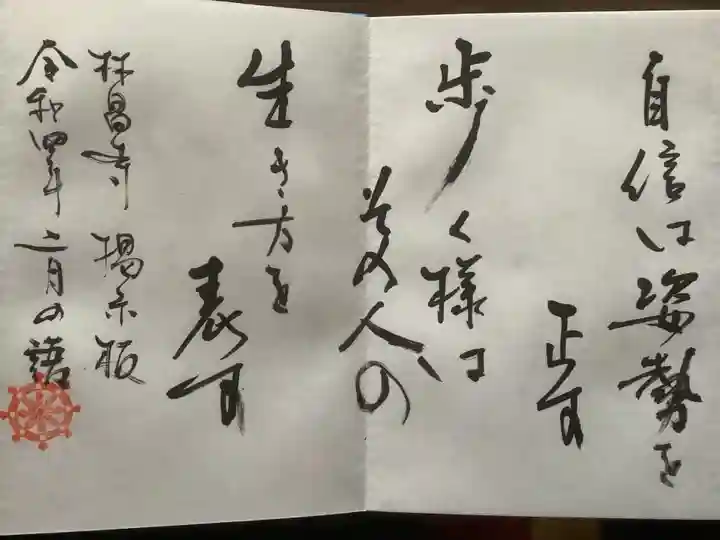 自信は姿勢を
正す
歩く様は
その人の
生き方を
表す
林昌寺 掲示板
令和四年二月の語